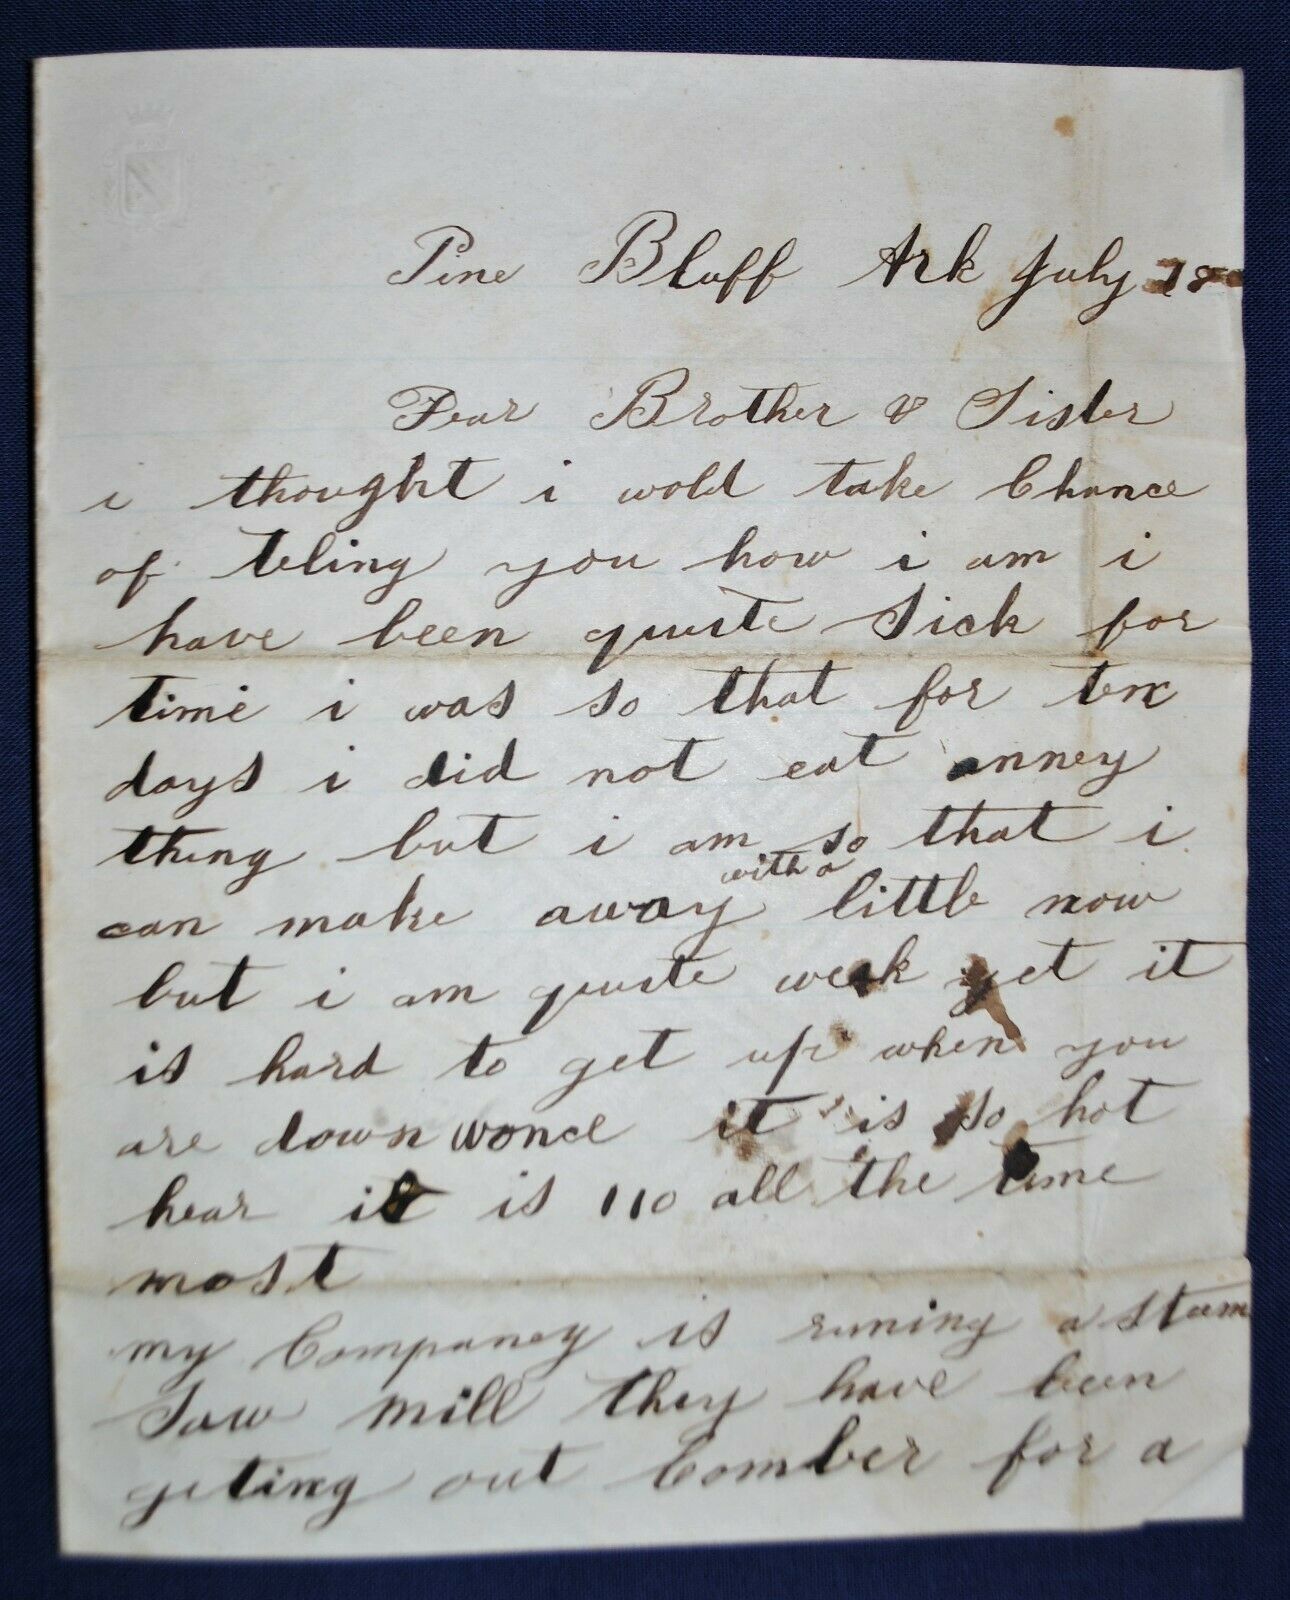 Pine Bluff Ark July 18
Dear Brother & Sister
i thought i wold take Chance
of teling you how i am i
have been quite Sick for
time i was so that for ten
days i did not eat anney
thing but i am so that i
can make away with a little now
but i am quite week yet it
is hard to get up when you
are down wonce it is so hot
hear it is 110 all the time
most
my Compancy is runing a steem
Saw mill they have been
geting out Comber for a